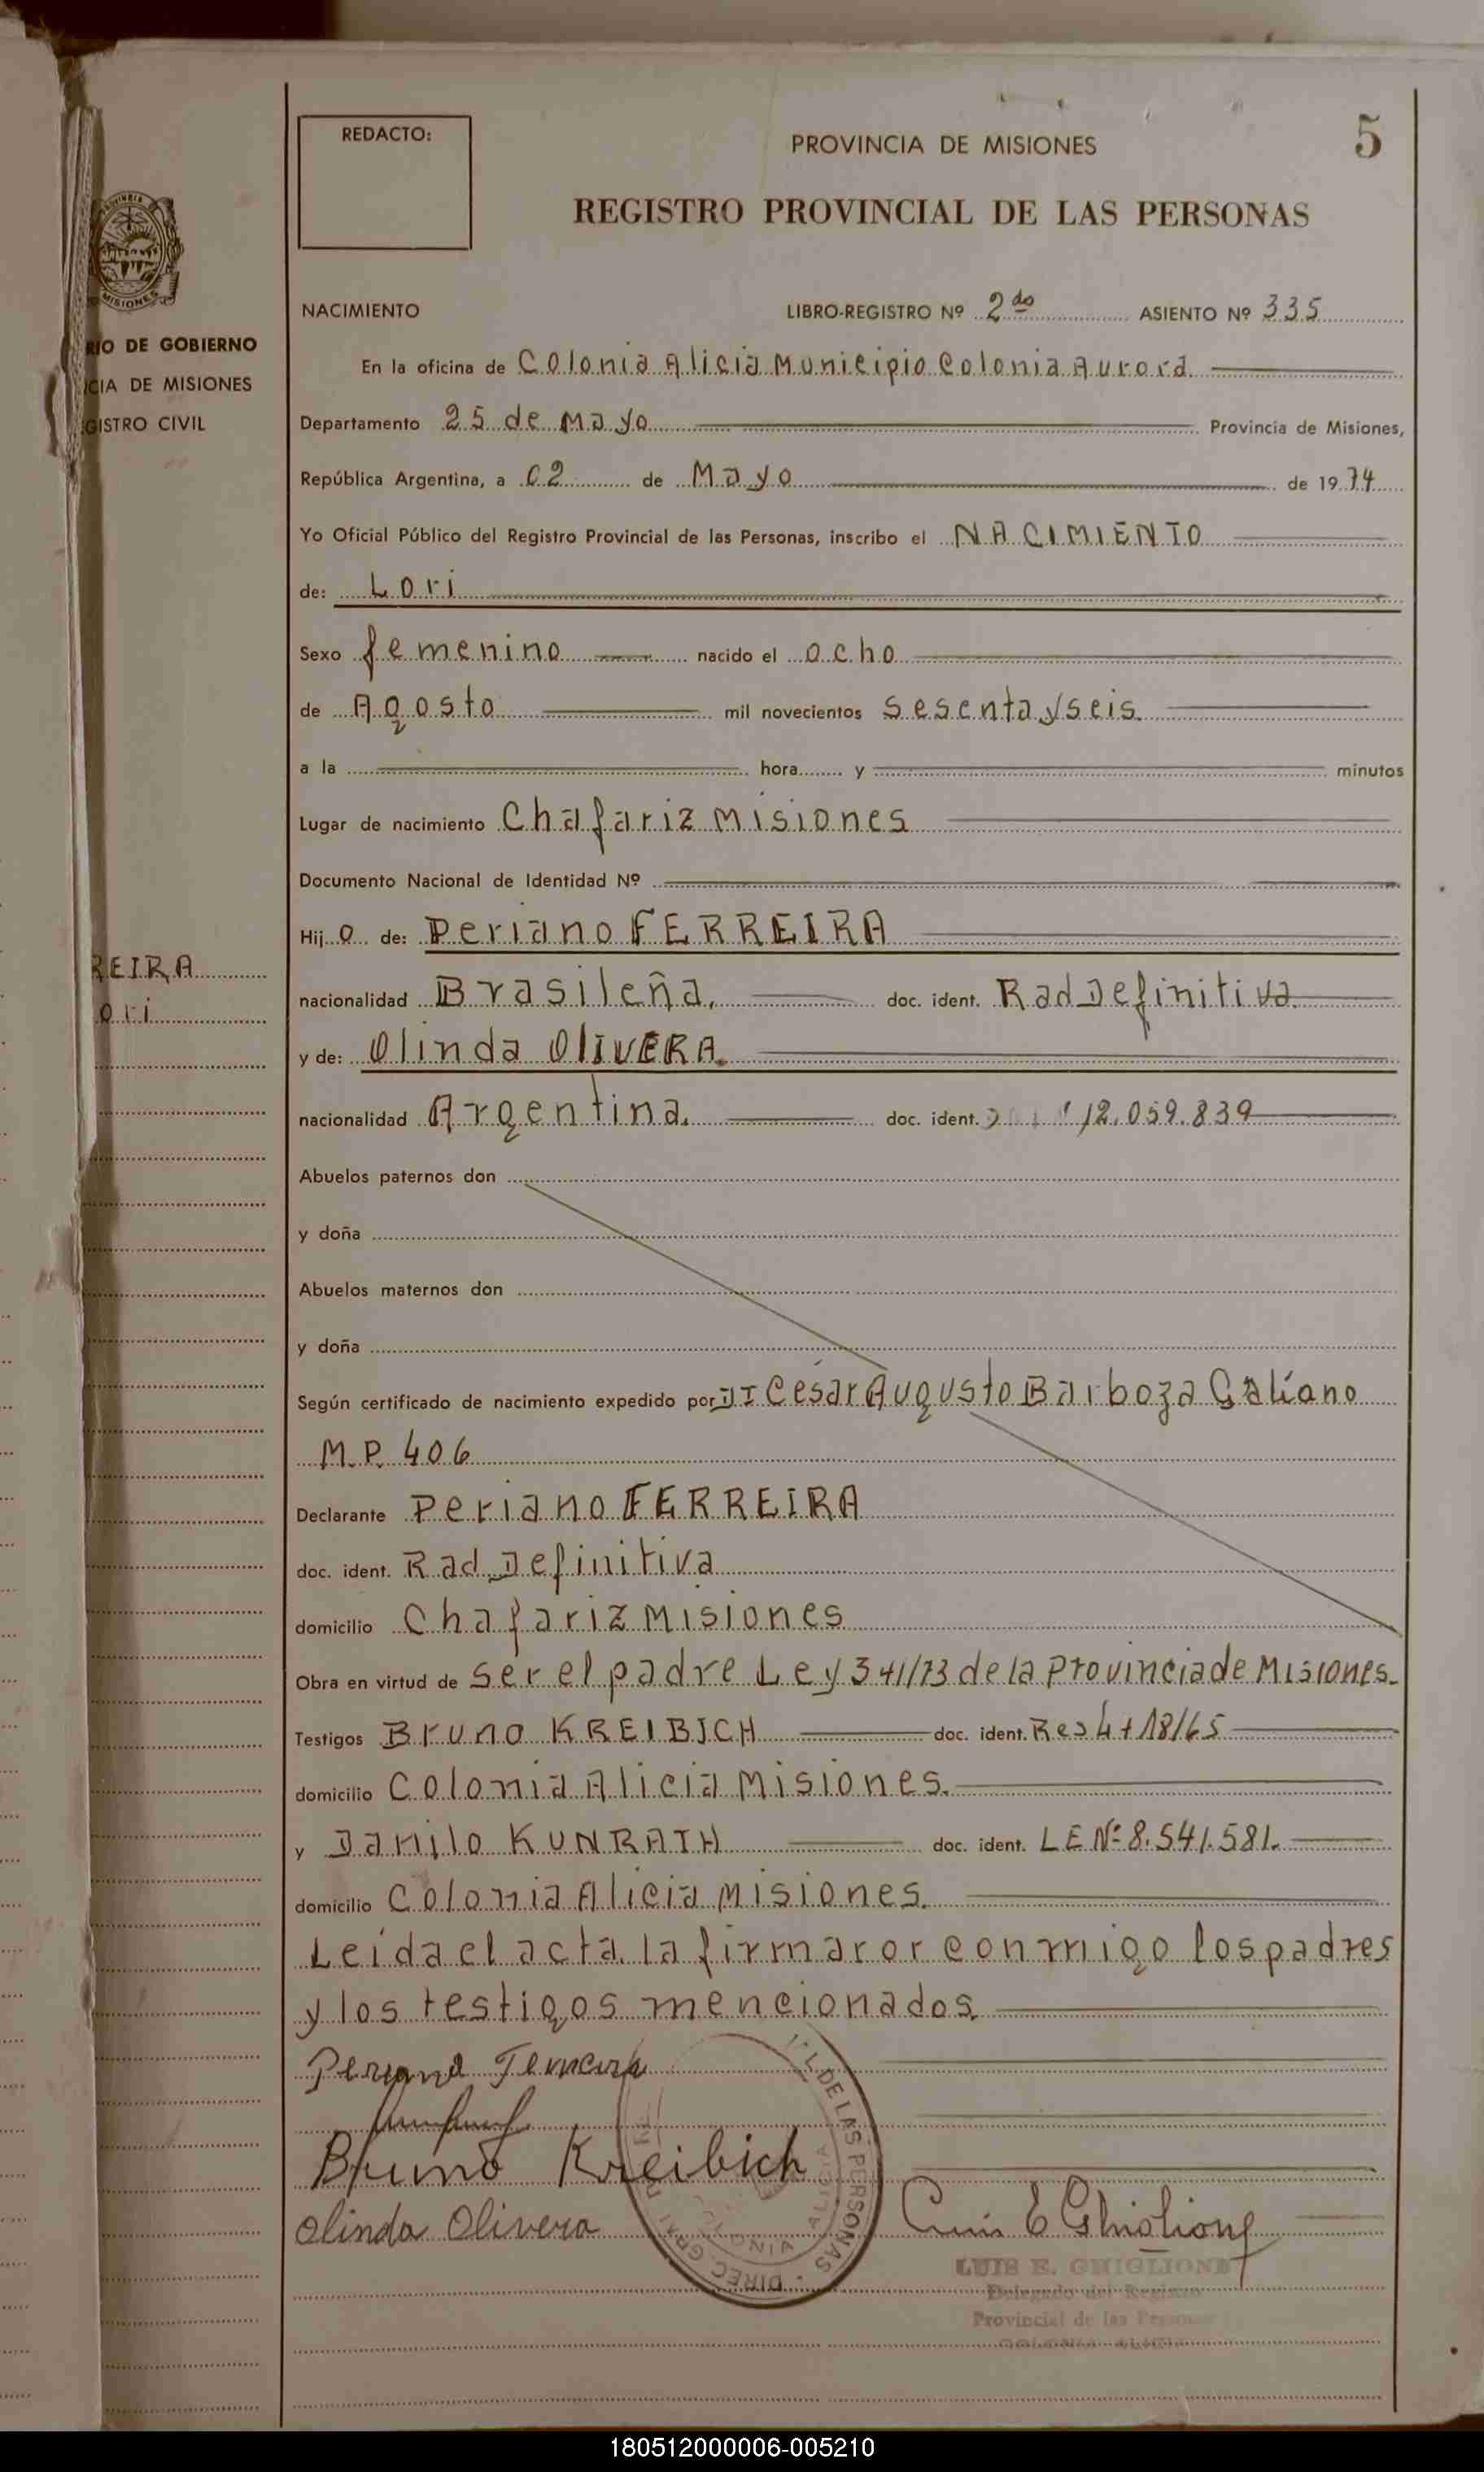 REDACTO:
PROVINCIA DE MISIONES
5
REGISTRO PROVINCIAL DE LAS PERSONAS
MISIONES
NACIMIENTO LIBRO-REGISTRO Nº 2do ASIENTO Nº 335
RIO DE GOBIERNO
CIA DE MISIONES
GISTRO CIVIL
En la oficina de Colonia Alicia Municipio Colonia Aurora.
Departamento 25 de Mayo Provincia de Misiones,
República Argentina, a 02 de Mayo de 1974
Yo Oficial Público del Registro Provincial de las Personas, inscribo el NACIMIENTO
de: Lori
Sexo femenino nacido el ocho
de Agosto mil novecientos sesenta y seis.
a la hora y minutos
Lugar de nacimiento Chafariz Misiones
Documento Nacional de Identidad Nº
Hij o de: Periano FERREIRA
REIRA
nacionalidad Brasileña, doc. ident. Rad Definitiva
ori
y de: Olinda OlIVERA.
nacionalidad Argentina. doc. ident. 12.059.839
Abuelos paternos don
y doña
Abuelos maternos don
y doña
Según certificado de nacimiento expedido por Dr César Augusto Barboza Galiano
M.P. 406
Declarante Periano FERREIRA
doc. ident. Rad Definitiva
domicilio Chafariz Misiones
Obra en virtud de ser el padre Ley 341/73 de la Provincia de Misiones.
Testigos Bruno KREIBICH doc. ident. 18/65
domicilio Colonia Alicia Misiones.
y Danilo KUNRATH doc. ident. LE Nº 8.541.581.
domicilio Colonia Alicia Misiones.
Leida el acta. la firmaror conmigo los padres
y los testigos mencionados.
Periano Ferreira
Bruno Kreibich
Olinda Olivera
Luis E Ghiglione
DE LAS PERSONAS - DIREC. GRAL
COLONIA ALICIA
LUIS E. GHIGLIONE
Delegado del Registro
Provincial de las Personas
COLONIA ALICIA
180512000006-005210